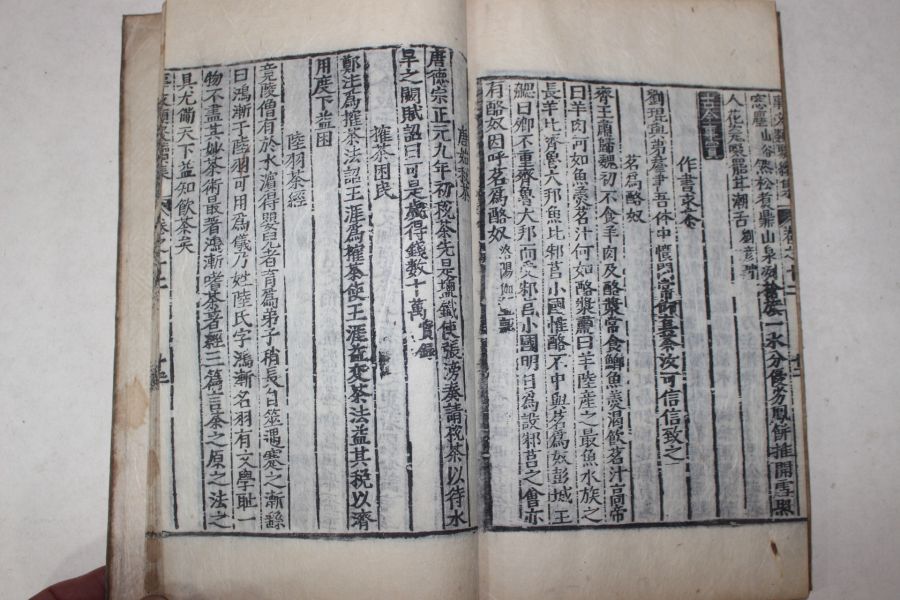 窓䨇山谷煞松煮鼎山泉冽一水分優劣鳳餅推開雪
人花雲瞖罷茸潮舌劉彦冲
古今事實
作書求茶
劉琨與弟羣書吾体中憒悶常仰真茶汝可信信致之
茗爲酪奴
齊王肅歸魏初不食羊肉及酪漿常食鯽魚羹渴飲茗汁高帝
曰羊肉何如魚羹茗汁何如酪漿肅曰羊陸産之最魚水族之
長羊比齊魯大邦魚比邾莒小國惟酪不中與茗爲奴彭城王
勰曰卿不重齊魯大邦而愛邾莒小國明日爲設邾莒之會亦
有酪奴因呼茗爲酪奴洛陽伽藍記
唐始稅茶
唐德宗正元九年初稅茶先是塩鐵使張滂奏請稅茶以待水
旱之闕賦詔曰可是歳得錢数十萬實録
搉茶困民
鄭注爲搉茶法詔王涯爲搉茶使王涯益変茶法益其税以濟
用度下益困
陸羽茶經
竟陵僧有於水濱得嬰兒者育爲弟子稍長自筮遇蹇之漸繇
曰鴻漸于陸羽可用爲儀乃姓陸氏字鴻漸名羽有文學耻一
物不盡其妙茶術最著鴻漸嗜茶著經三篇言茶之原之法之
具尤備天下益知飲茶矣